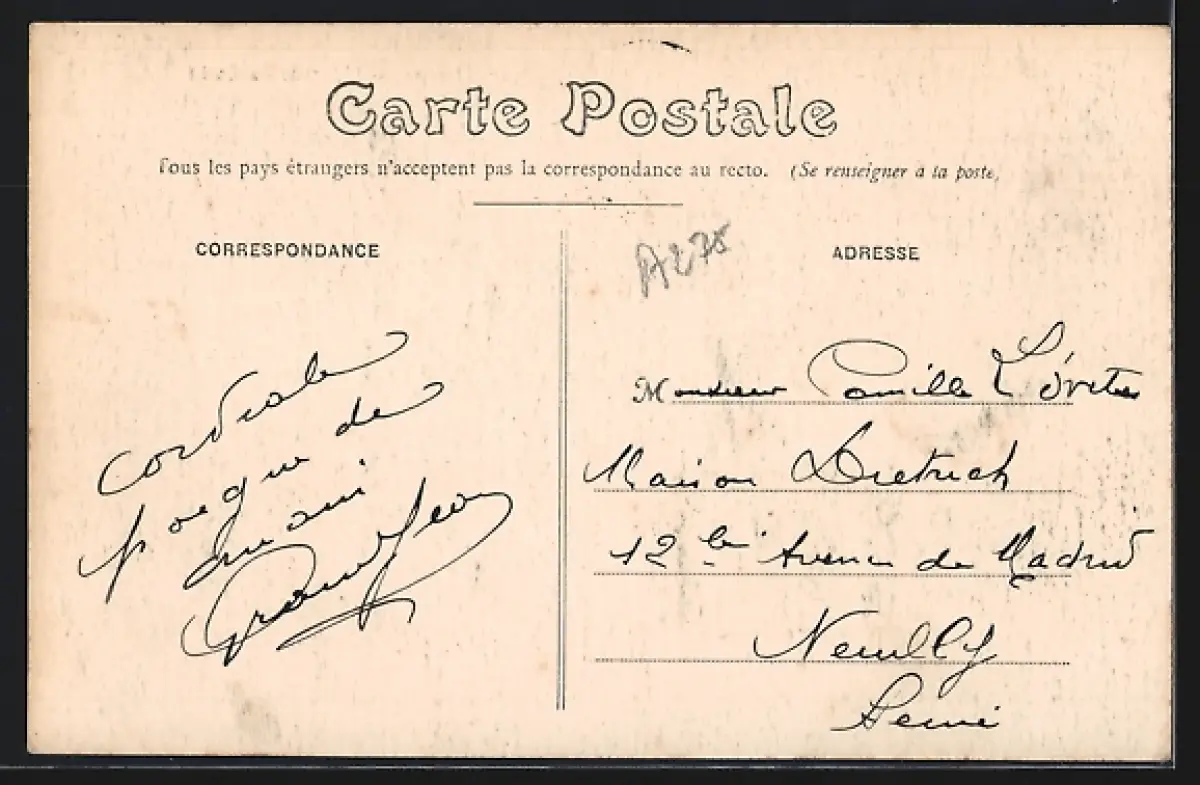 Carte Postale
Tous les pays étrangers n'acceptent pas la correspondance au recto. (Se renseigner à la poste)
CORRESPONDANCE
ADRESSE
A275
Cordiale
poigné de
Grandjean
Monsieur Camille
Maison Dietrich
12 bis Avenue de Madrid
Neuilly
Seine